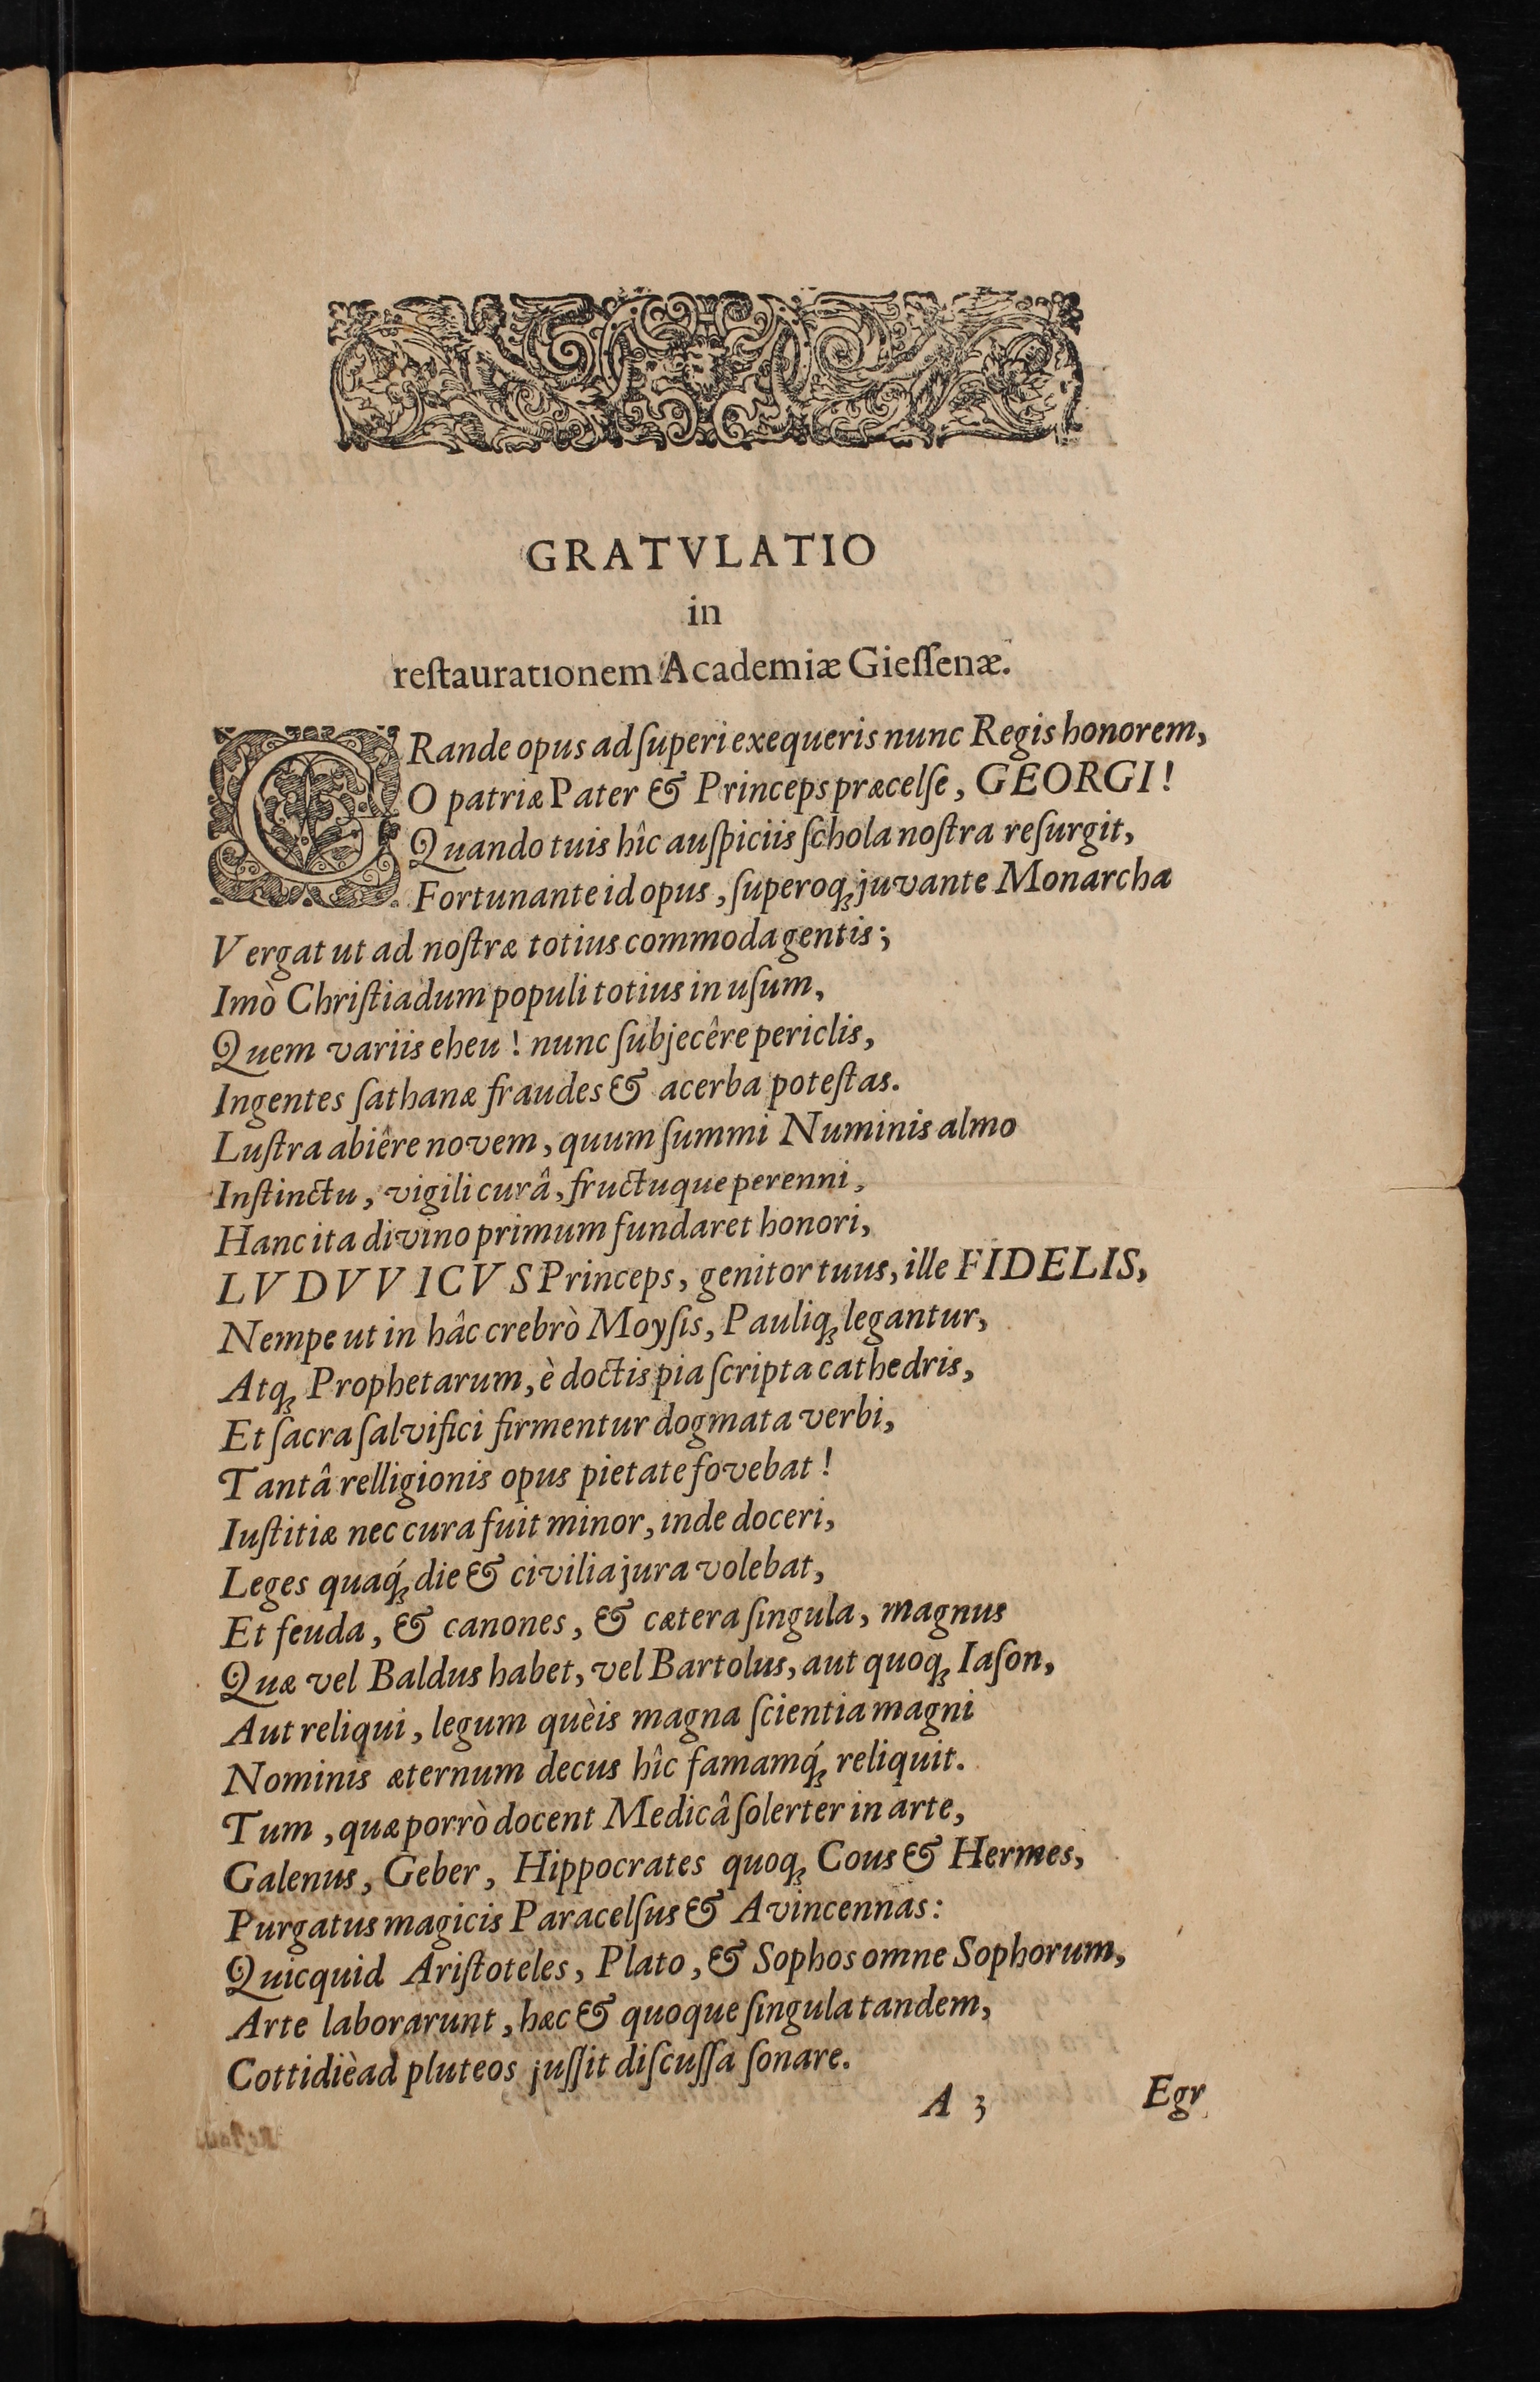 GRATVLATIO
in
reſtaurationem Academiæ Gieſſenæ.
GRande opus ad ſuperi exequeris nunc Regis honorem,
O patriæ Pater & Princeps præcelſe, GEORGI!
Quando tuis hîc auſpiciis ſchola noſtra reſurgit,
Fortunante id opus, ſuperoq́ juvante Monarcha
Vergat ut ad noſtræ totius commoda gentis;
Imò Chriſtiadum populi totius in uſum,
Quem variis eheu! nunc ſubjecêre periclis,
Ingentes ſathanæ fraudes & acerba poteſtas.
Luſtra abiêre novem, quum ſummi Numinis almo
Inſtinctu, vigili curâ, fructuque perenni,
Hanc ita divino primum fundaret honori,
LVDVVICVS Princeps, genitor tuus, ille FIDELIS,
Nempe ut in hâc crebrò Moyſis, Pauliq; legantur,
Atq; Prophetarum, è doctis pia ſcripta cathedris,
Et ſacra ſalvifici firmentur dogmata verbi,
Tantâ relligionis opus pietate fovebat!
Iuſtitiæ nec cura fuit minor, inde doceri,
Leges quaq́; die & civilia jura volebat,
Et feuda, & canones, & cætera ſingula, magnus
Quæ vel Baldus habet, vel Bartolus, aut quoq; Iaſon,
Aut reliqui, legum quèis magna ſcientia magni
Nominis æternum decus hîc famamq́; reliquit.
Tum, quæ porrò docent Medicâ ſolerter in arte,
Galenus, Geber, Hippocrates quoq; Cous & Hermes,
Purgatus magicis Paracelſus & Avincennas:
Quicquid Ariſtoteles, Plato, & Sophos omne Sophorum,
Arte laborarunt, hæc & quoque ſingula tandem,
Cottidiè ad pluteos juſſit diſcuſſa ſonare.
A 3
Egr